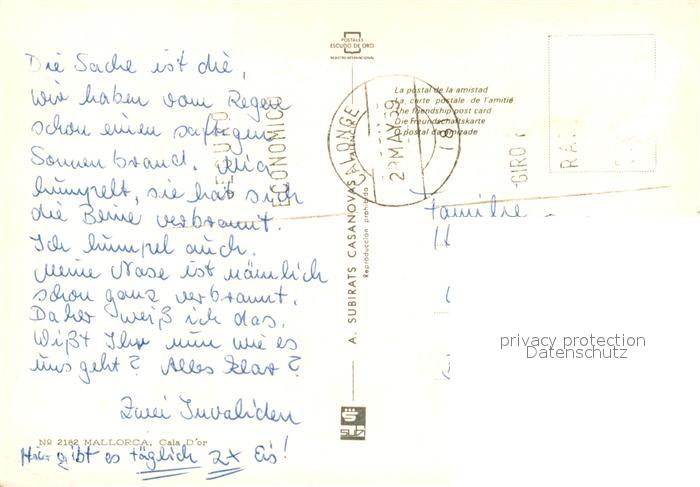 Die Sache ist die,
wir haben vom Regen
schon einen saftigen
Sonnenbrand.
humpelt, sie hat sich
die Beine verbrannt.
Ich humpel auch.
Meine Nase ist nämlich
schon ganz verbrannt.
Daher weiß ich das.
Wißt Ihr nun wie es
uns geht? Alles klar?
Zwei Invaliden
Nº 2182 MALLORCA. Cala D'or
Hier gibt es täglich 2x Eis!
POSTALES
ESCUDO DE ORO
REGISTRO INTERNACIONAL
A. SUBIRATS CASANOVAS
Reproducción prohibida
SUBI
La postal de la amistad
La carte postale de l'amitié
The friendship post card
Die Freundschaftskarte
O postal da amizade
ECONOMICO
GIRO
Familie
privacy protection
Datenschutz